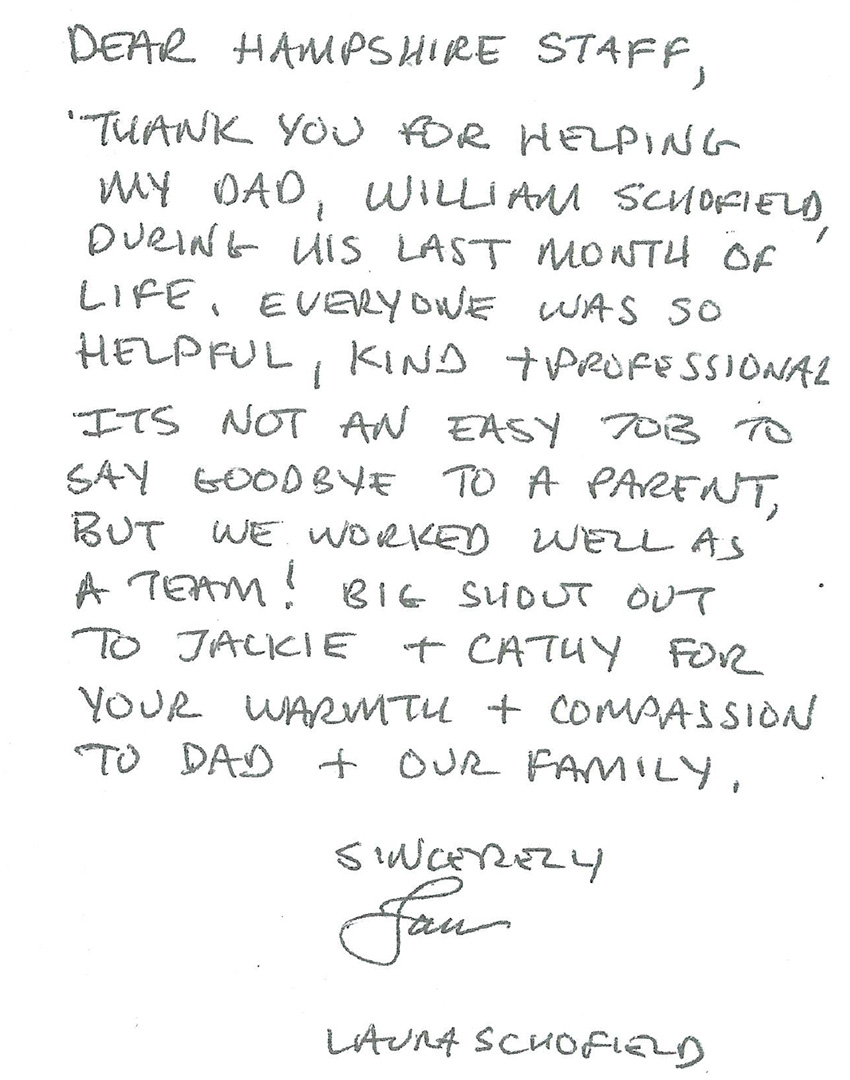 DEAR HAMPSHIRE STAFF,
THANK YOU FOR HELPING
MY DAD, WILLIAM SCHOFIELD,
DURING HIS LAST MONTH OF
LIFE. EVERYONE WAS SO
HELPFUL, KIND + PROFESSIONAL
ITS NOT AN EASY JOB TO
SAY GOODBYE TO A PARENT,
BUT WE WORKED WELL AS
A TEAM! BIG SHOUT OUT
TO JACKIE + CATHY FOR
YOUR WARMTH + COMPASSION
TO DAD + OUR FAMILY.
SINCERELY
LAURA SCHOFIELD